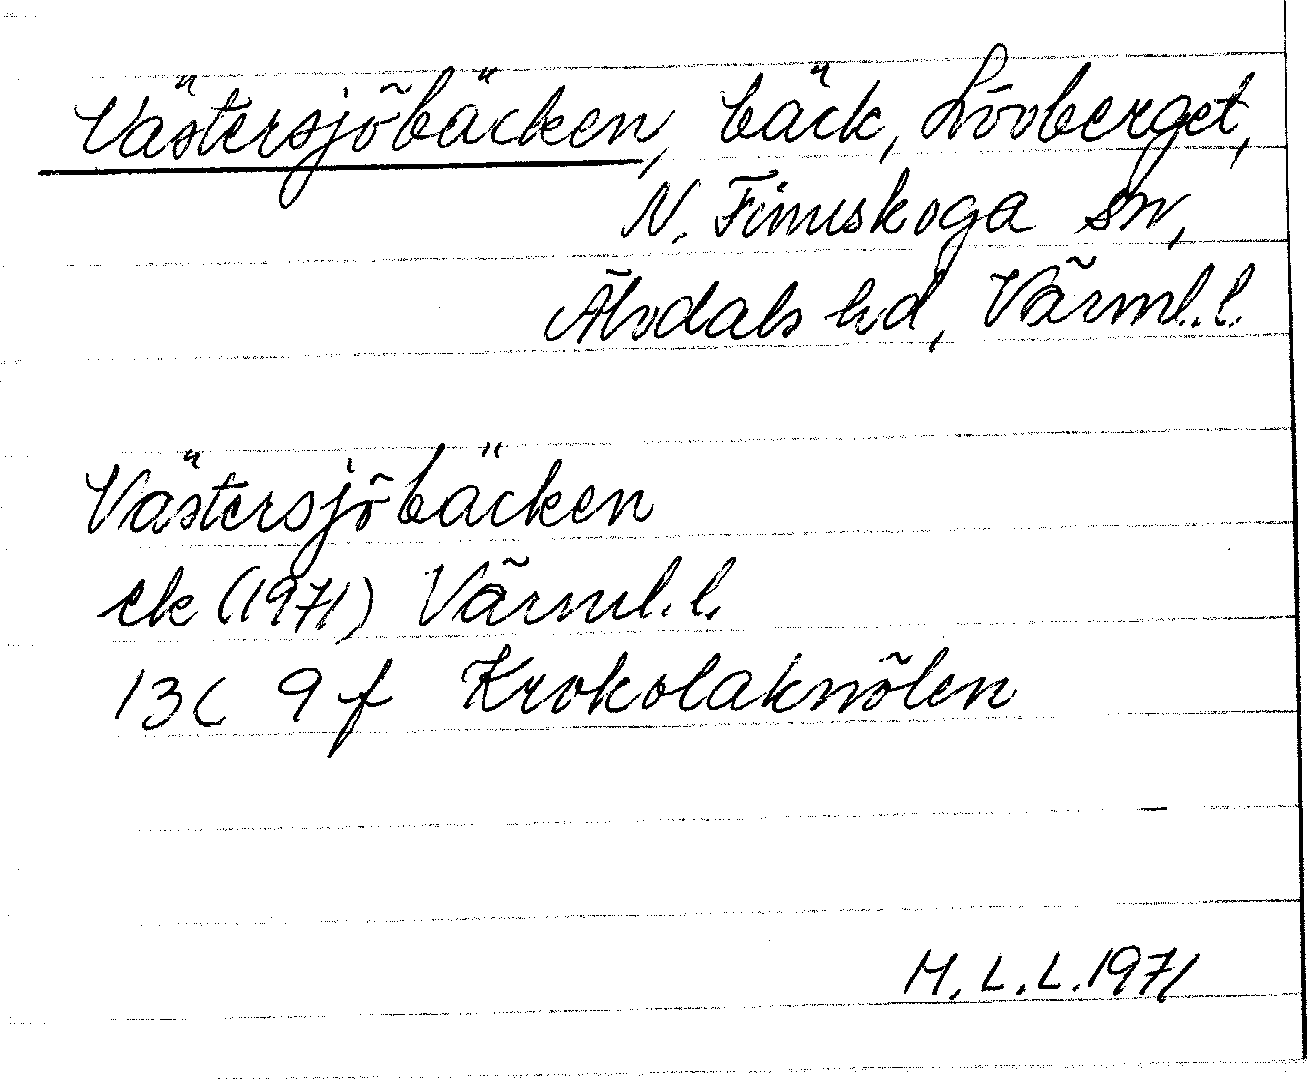 Västersjöbäcken, bäck, Lövberget,
N. Finnskoga sn,
Älvdals hd, Värml.l.
Västersjöbäcken
ek (1971) Värml.l.
13C 9f Krokolaknölen
M.L.L.1971